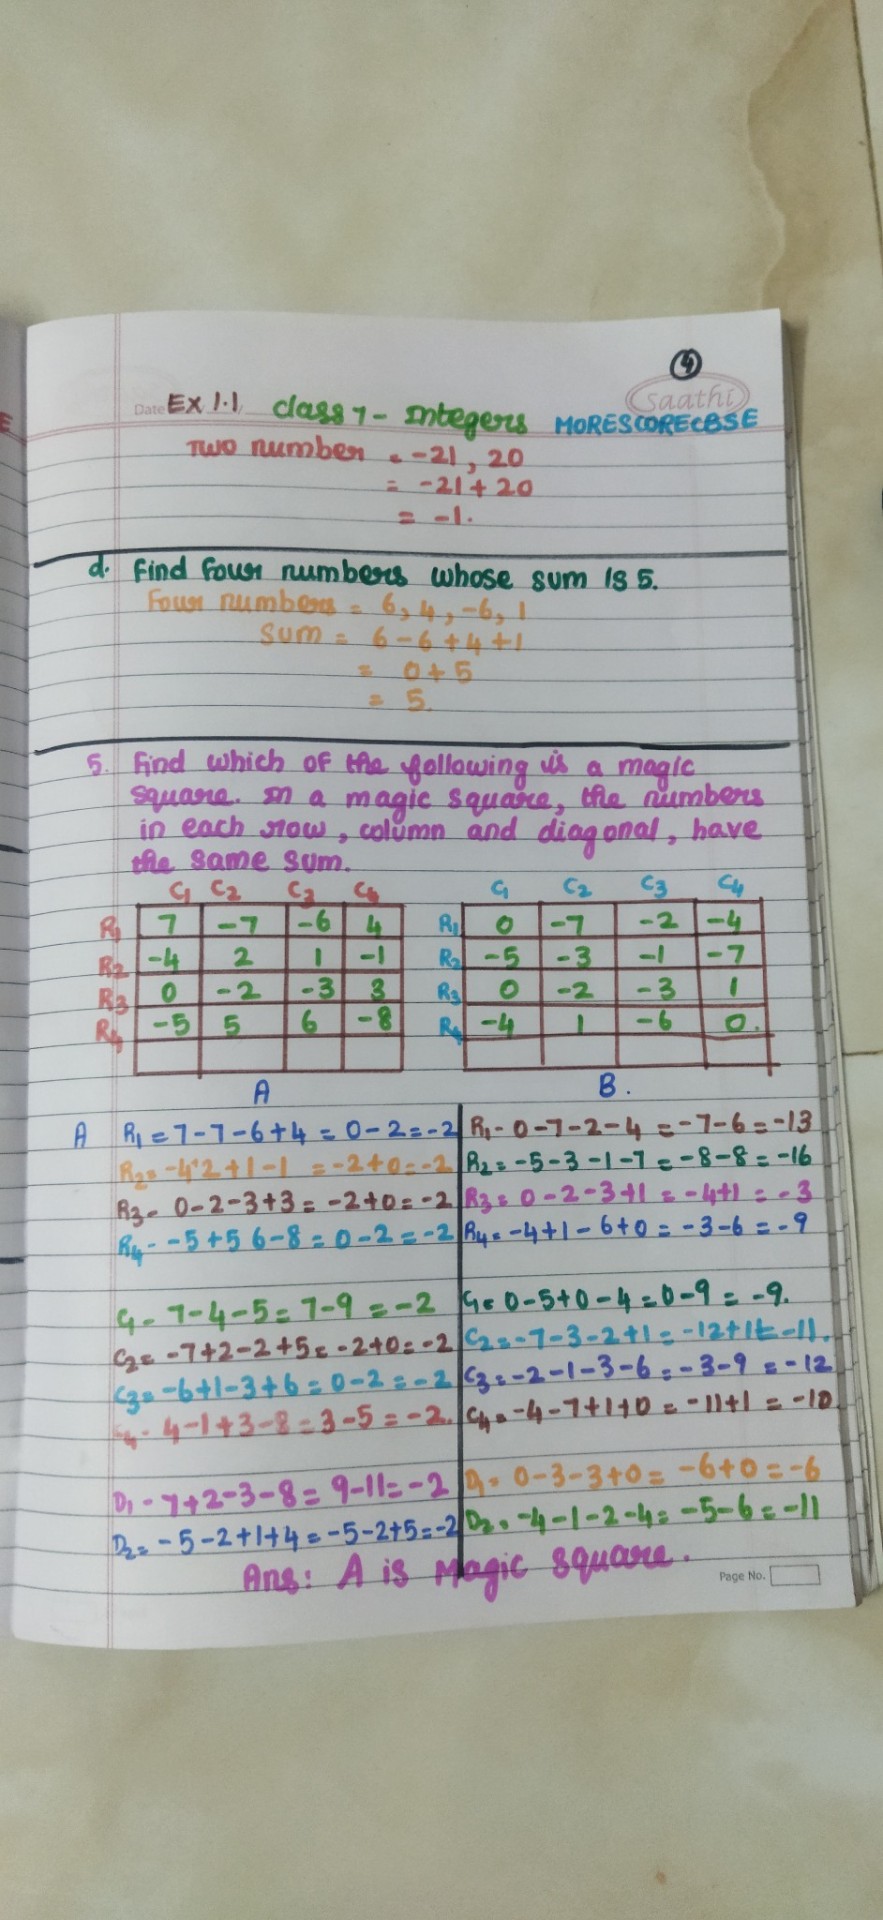 4
saathi
Date Ex 1.1, class 7 - Integers MORESCORECBSE
Two number = -21, 20
= -21 + 20
= -1.
d. Find four numbers whose sum is 5.
Four numbers = 6, 4, -6, 1
Sum = 6 - 6 + 4 + 1
= 0 + 5
= 5.
5. Find which of the following is a magic
square. In a magic square, the numbers
in each row, column and diagonal, have
the same sum.
C1 C2 C3 C4
R1 7 -7 -6 4
R2 -4 2 1 -1
R3 0 -2 -3 3
R4 -5 5 6 -8
A
C1 C2 C3 C4
R1 0 -7 -2 -4
R2 -5 -3 -1 -7
R3 0 -2 -3 1
R4 -4 1 -6 0.
B.
A R1 = 7-7-6+4 = 0-2 = -2
R2 = -4+2+1-1 = -2+0 = -2
R3 - 0-2-3+3 = -2+0 = -2
R4 - -5+5 6-8 = 0-2 = -2
C1 - 7-4-5 = 7-9 = -2
C2 = -7+2-2+5 = -2+0 = -2
C3 = -6+1-3+6 = 0-2 = -2
C4 - 4-1+3-8 = 3-5 = -2.
D1 - 7+2-3-8 = 9-11 = -2
D2 = -5-2+1+4 = -5-2+5 = -2
R1 - 0-7-2-4 = -7-6 = -13
R2 = -5-3-1-7 = -8-8 = -16
R3 = 0-2-3+1 = -4+1 = -3
R4 = -4+1-6+0 = -3-6 = -9
C1 = 0-5+0-4 = 0-9 = -9.
C2 = -7-3-2+1 = -12+1 = -11.
C3 = -2-1-3-6 = -3-9 = -12
C4 = -4-7+1+0 = -11+1 = -10
D1 = 0-3-3+0 = -6+0 = -6
D2 = -4-1-2-4 = -5-6 = -11
Ans: A is Magic square.
Page No.